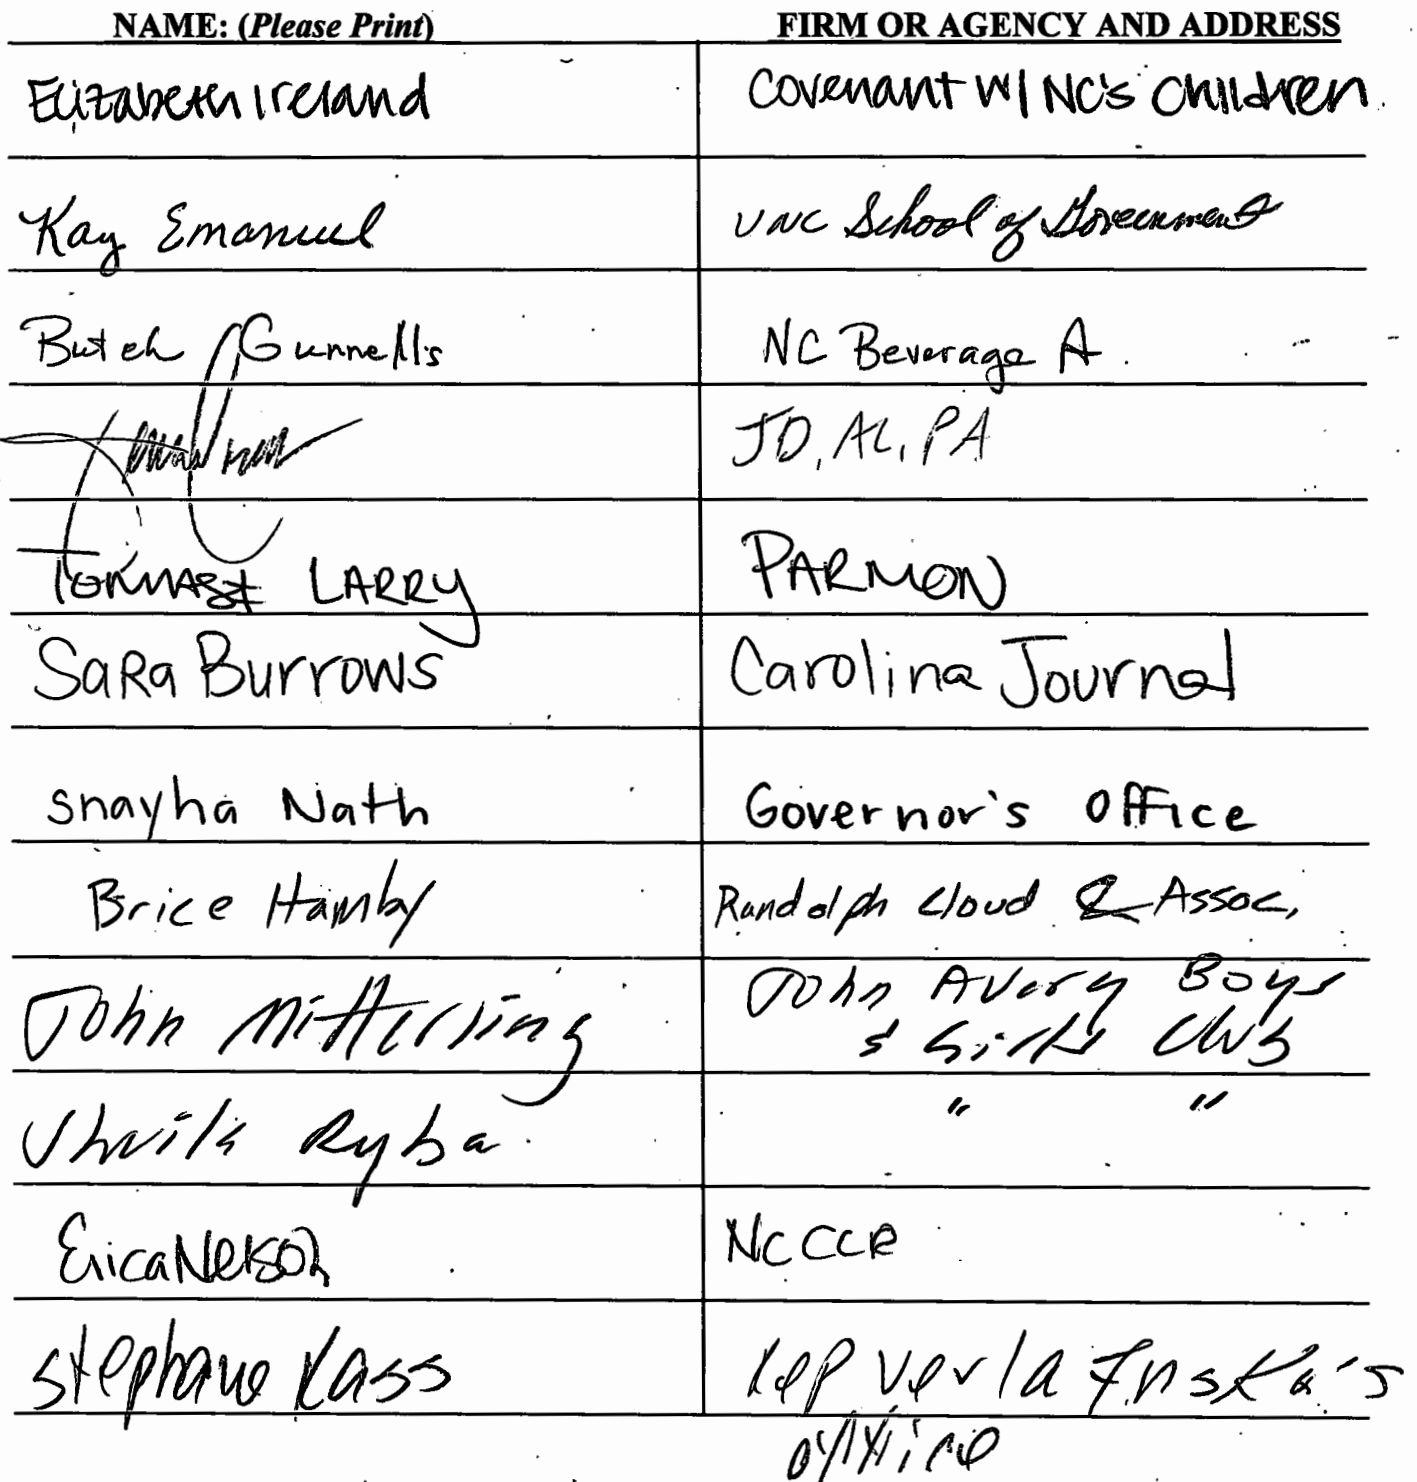 NAME: (Please Print) FIRM OR AGENCY AND ADDRESS
Elizabeth Ireland Covenant W/ NC's Children
Kay Emanuel UNC School of Government
Butch Gunnells NC Beverage A
JD, AL, PA
LARRY PARMON
SaRa Burrows Carolina Journal
Snayha Nath Governor's Office
Brice Hamby Randolph Cloud & Assoc.
John Mitterling John Avery Boys
& Girls Club
Sheila Ryba " "
Erica Nelson NCCCR
Stephanie Kass Rep Verla Insko's
office